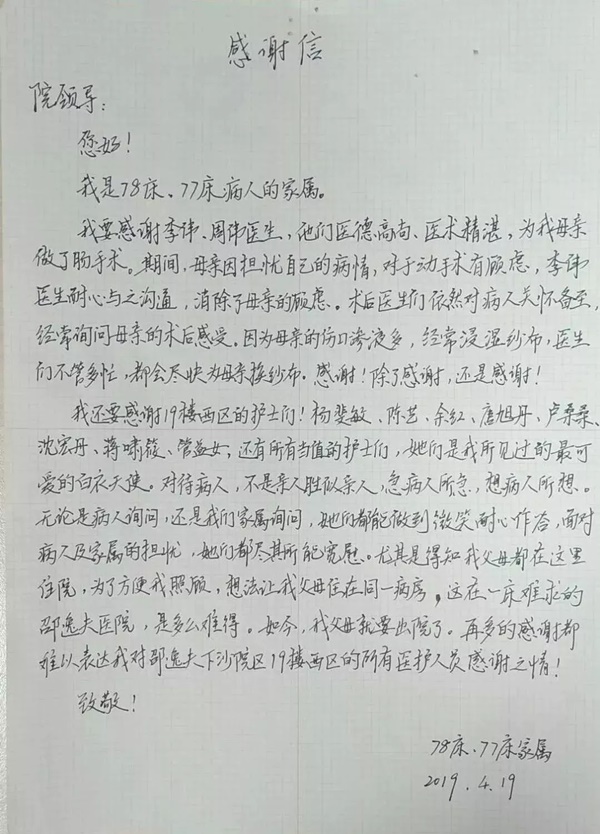 感谢信
院领导：
您好！
我是78床、77床病人的家属。
我要感谢李玮、周伟医生，他们医德高尚、医术精湛，为我母亲
做了肠手术。期间，母亲因担忧自己的病情，对于动手术有顾虑，李玮
医生耐心与之沟通，消除了母亲的顾虑。术后医生们依然对病人关怀备至，
经常询问母亲的术后感受。因为母亲的伤口渗液多，经常浸湿纱布，医生
们不管多忙，都会尽快为母亲换纱布。感谢！除了感谢，还是感谢！
我还要感谢19楼西区的护士们！杨斐敏、陈艺、余红、唐旭丹、卢桑桑、
沈宏丹、蒋啸筱、管益女；还有所有当值的护士们，她们是我所见过的最可
爱的白衣天使。对待病人，不是亲人胜似亲人，急病人所急，想病人所想。
无论是病人询问，还是我们家属询问，她们都能做到微笑耐心作答，面对
病人及家属的担忧，她们都尽其所能宽慰。尤其是得知我父母都在这里
住院，为了方便我照顾，想法让我父母住在同一病房，这在一床难求的
邵逸夫医院，是多么难得。如今，我父母就要出院了。再多的感谢都
难以表达我对邵逸夫下沙院区19楼西区的所有医护人员感谢之情！
致敬！
78床、77床家属
2019.4.19